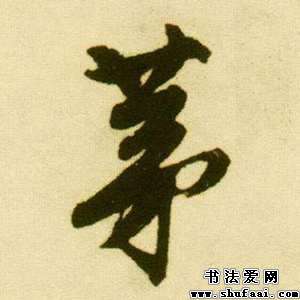 茅
书法爱网
www.shufaai.com